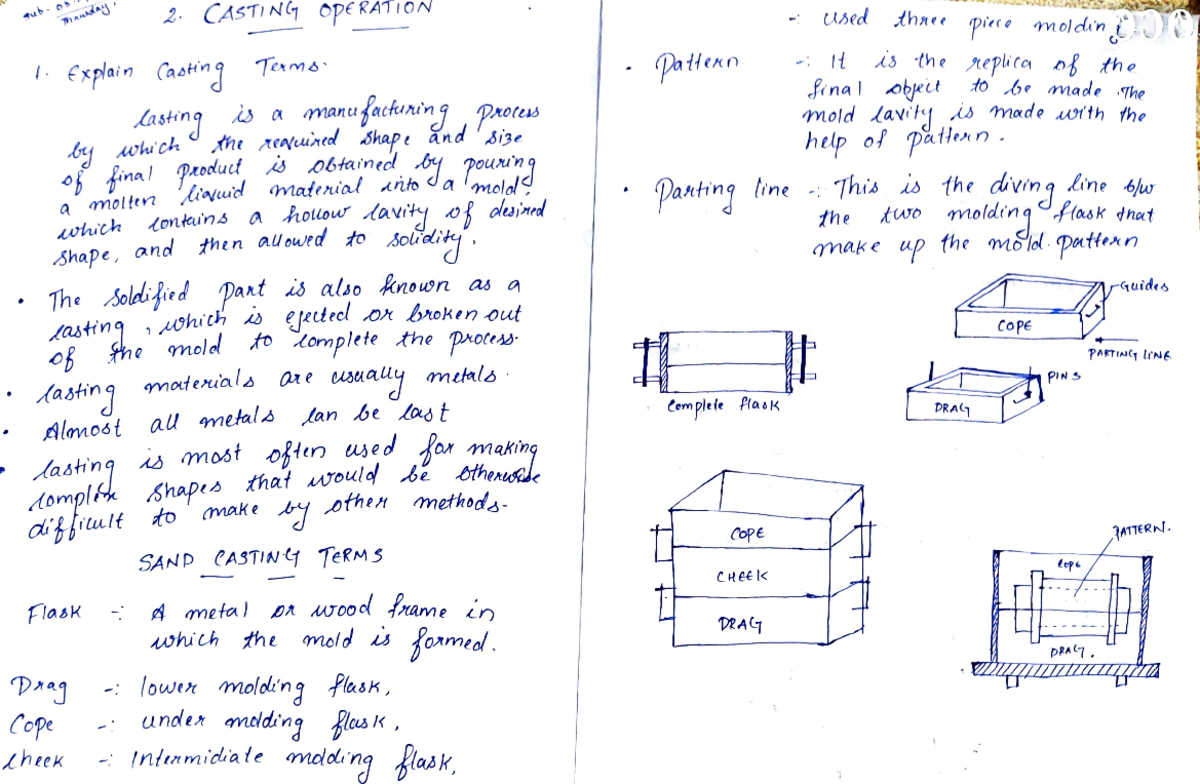 sub-
Thursday.
2. CASTING OPERATION
1. Explain Casting Terms.
Casting is a manufacturing Process
by which the required shape and size
of final product is obtained by pouring
a molten liquid material into a mold,
which contains a hollow cavity of desired
shape, and then allowed to solidity.
• The Soldified part is also known as a
casting, which is ejected or broken out
of the mold to complete the process.
• Casting materials are usually metals.
• Almost all metals can be cast
• Casting is most often used for making
complex shapes that would be otherwise
difficult to make by other methods-
SAND CASTING TERMS
Flask -: A metal or wood frame in
which the mold is formed.
Drag -: lower molding flask,
Cope -: under molding flask,
cheek -: Intermidiate molding flask,
-: used three piece molding
• Pattern -: It is the replica of the
final object to be made. The
mold cavity is made with the
help of pattern.
• Parting line -: This is the diving line b/w
the two molding flask that
make up the mold. pattern
Guides
COPE
PARTING LINE
PINS
DRAG
Complete flask
COPE
CHEEK
DRAG
PATTERN.
Cope
DRAG.